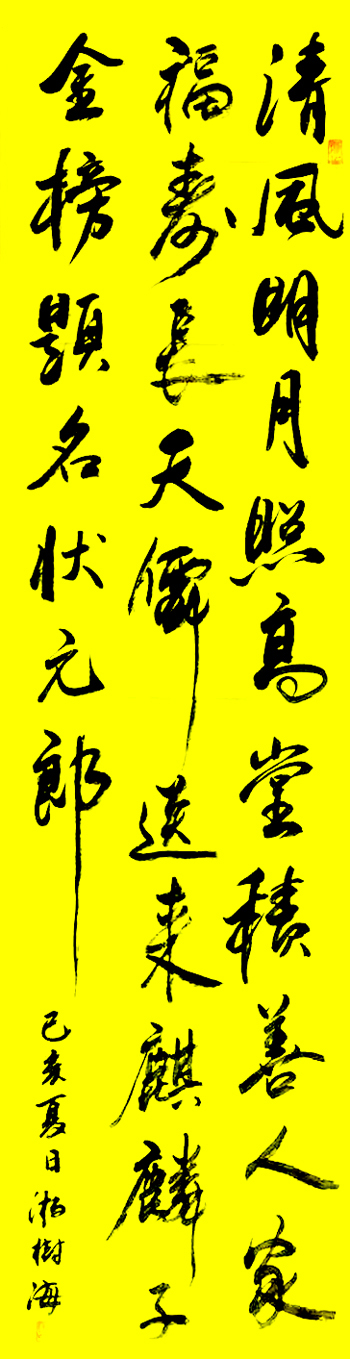 清風明月照高堂積善人家
福壽長天僊送来麒麟子
金榜題名状元郎
己亥夏日樹海